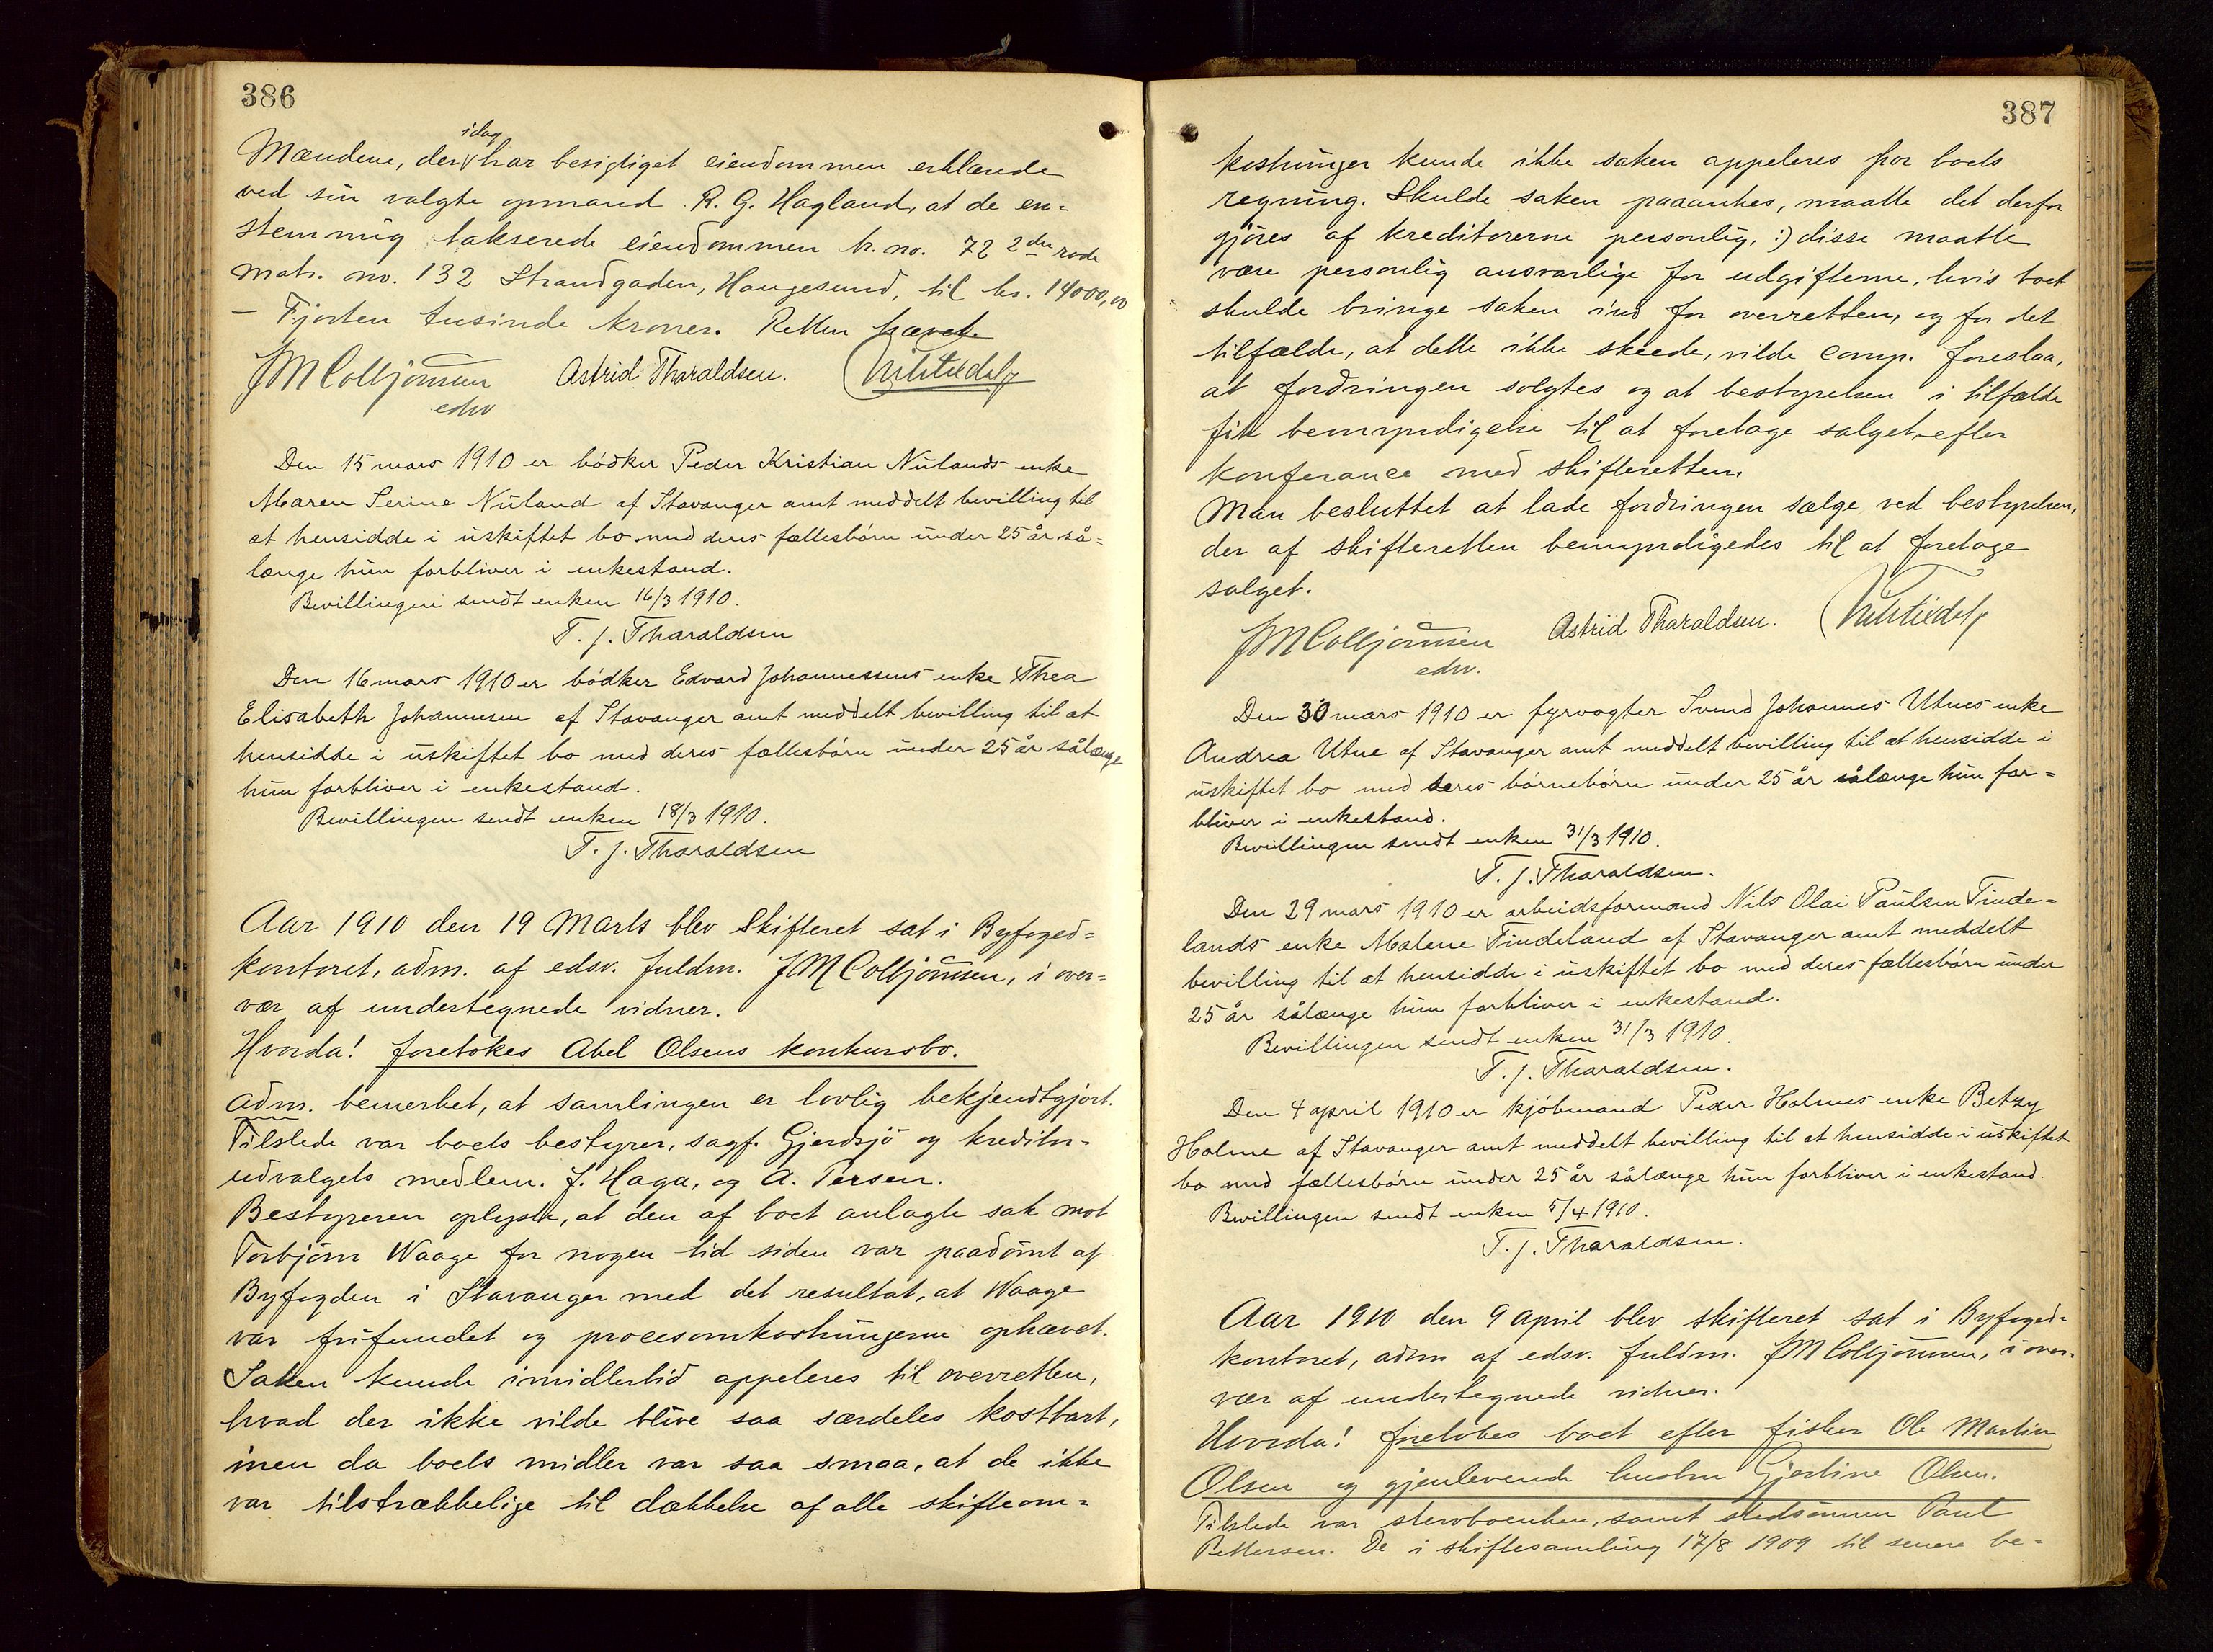 386
idag
Mændene, der har besigtiget eiendommen erklærede
ved sin valgte opmand R. G. Hagland, at de en=
stemmig takserede eiendommen br. no. 72 2den rode
matr. no. 132 Strandgaden, Haugesund, til kr. 14000,00
– Fjorten tusinde kroner. Retten hævet.
JM Colbjørnsen Astrid Tharaldsen.
edsv
Den 15 mars 1910 er bødker Peder Kristian Nülands enke
Maren Serine Nüland af Stavanger amt meddelt bevilling til
at hensidde i uskiftet bo med deres fællesbørn under 25 år så=
længe hun forbliver i enkestand.
Bevillingen sendt enken 16/3 1910.
T. J. Tharaldsen
Den 16 mars 1910 er bødker Edvard Johannessens enke Thea
Elisabeth Johannesen af Stavanger amt meddelt bevilling til at
hensidde i uskiftet bo med deres fællesbørn under 25 år sålænge
hun forbliver i enkestand.
Bevillingen sendt enken 18/3 1910.
T. J. Tharaldsen
Aar 1910 den 19 Marts blev Skifteret sat i Byfoged=
kontoret, adm. af edsv. fuldm. JM Colbjørnsen, i over=
vær af undertegnede vidner.
Hvorda! foretokes Abel Olsens konkursbo.
Adm. bemerket, at samlingen er lovlig bekjendtgjort.
Tilstede var boets bestyrer, sagf. Gjerdsjø og kreditor=
udvalgets medlem. J. Haga, og A. Tersen.
Bestyreren oplyste, at den af boet anlagte sak mot
Torbjørn Waage for nogen tid siden var paadømt af
Byfogden i Stavanger med det resultat, at Waage
var frifundet og procesomkostningerne ophævet.
Saken kunde imidlertid appeleres til overretten,
hvad der ikke vilde blive saa særdeles kostbart,
men da boets midler var saa smaa, at de ikke
var tilstrækkelige til dækkelse af alle skifteom=
387
kostninger kunde ikke saken appeleres for boets
regning. Skulde saken paaankes, maatte det derfor
gjøres af kreditorerne personlig, :) disse maatte
være personlig ansvarlige for udgifterne, hvis boet
skulde bringe saken ind for overretten, og for det
tilfælde, at dette ikke skeede, vilde comp. foreslaa,
at fordringen solgtes og at bestyrelsen i tilfælde
fik bemyndigelse til at foretage salget efter
konferance med skifteretten.
Man besluttet at lade fordringen sælge ved bestyrelsen,
der af skifteretten bemyndigedes til at foretage
salget.
JM Colbjørnsen Astrid Tharaldsen.
edsv.
Den 30 mars 1910 er fyrvogter Svend Johannes Utnes enke
Andrea Utne af Stavanger amt meddelt bevilling til at hensidde i
uskiftet bo med deres børnebørn under 25 år sålænge hun for=
bliver i enkestand.
Bevillingen sendt enken 31/3 1910.
T. J. Tharaldsen.
Den 29 mars 1910 er arbeidsformand Nils Olai Paulsen Tinde=
lands enke Malene Tindeland af Stavanger amt meddelt
bevilling til at hensidde i uskiftet bo med deres fællesbørn under
25 år sålænge hun forbliver i enkestand.
Bevillingen sendt enken 31/3 1910.
T. J. Tharaldsen.
Den 4 april 1910 er kjøbmand Peder Holmes enke Betzy
Holme af Stavanger amt meddelt bevilling til at hensidde i uskiftet
bo med fællesbørn under 25 år sålænge hun forbliver i enkestand.
Bevillingen sendt enken 5/4 1910.
T. J. Tharaldsen.
Aar 1910 den 9 April blev skifteret sat i Byfoged=
kontoret, adm af edsv. fuldm. JM Colbjørnsen, i over=
vær af undertegnede vidner.
Hvorda! foretokes boet efter fisker Ole Martin
Olsen og gjenlevende hustru Gjertine Olsen.
Tilstede var stervboenken, samt stedsønnen Paul
Pettersen. De i skiftesamling 17/8 1909 til senere be=